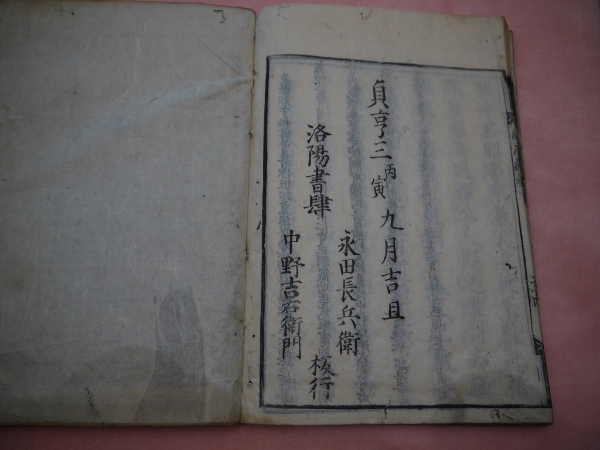 貞享三丙寅九月吉旦
洛陽書肆
永田長兵衛
中野吉右衛門
板行